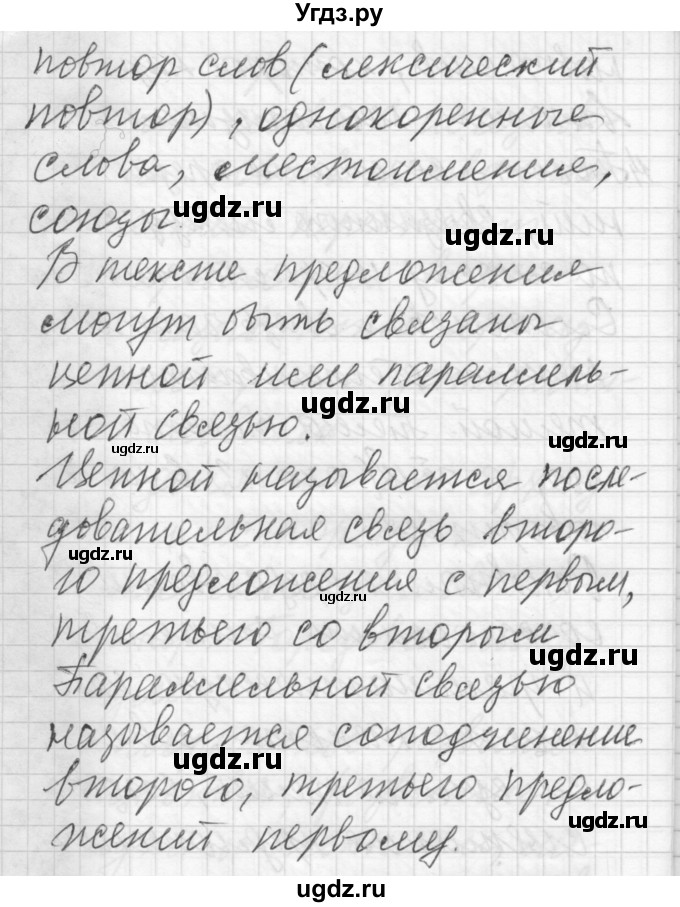 Угдз.ру
повтор слов (лексический
повтор), однокоренные
слова, местоимения,
союзы.
ugdz.ru
ugdz.ru
В тексте предложения
могут быть связаны
цепной или параллель-
ugdz.ru
ной связью.
ugdz.ru
ugdz.ru
Цепной называется после-
довательная связь второ-
ugdz.ru
го предложения с первым,
ugdz.ru
третьего со вторым
ugdz.ru
Параллельной связью
называется соподчинение
ugdz.ru
второго, третьего предло-
ugdz.ru
жений первому.
ugdz.ru